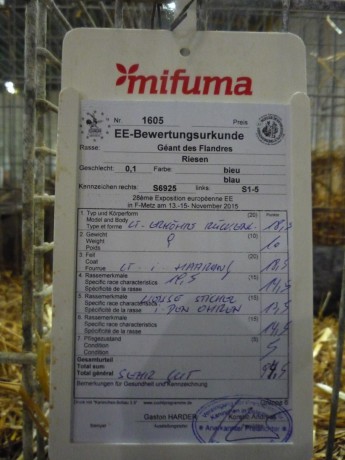 mifuma
Nr. 1605 Preis
EE-Bewertungsurkunde
Rasse: Géant des Flandres
Riesen
Geschlecht: 0,1 Farbe: bleu
blau
Kennzeichen rechts: S6925 links: S1-5
28ème Exposition européenne EE
in F-Metz am 13.-15- November 2015
1. Typ und Körperform (20)
Model and Body
Type et forme LT.
2. Gewicht (10)
Weight
Poids 10
3. Fell (20)
Coat
Fourrure LT. HAARUNG
4. Rassemerkmale (15)
Specific race characteristics 14,5
Spécificité de la race 14,5
5. Rassemerkmale (15)
Specific race characteristics
Spécificité de la race OHREN 13,5
6. Rassemerkmale (15)
Specific race characteristics
Spécificité de la race 14,5
7. Pflegezustand (5)
Condition
Condition 5
Gesamturteil
Total sum
Total général SEHR GUT
Bemerkungen für Gesundheit und Kennzeichnung
Gaston HARDER